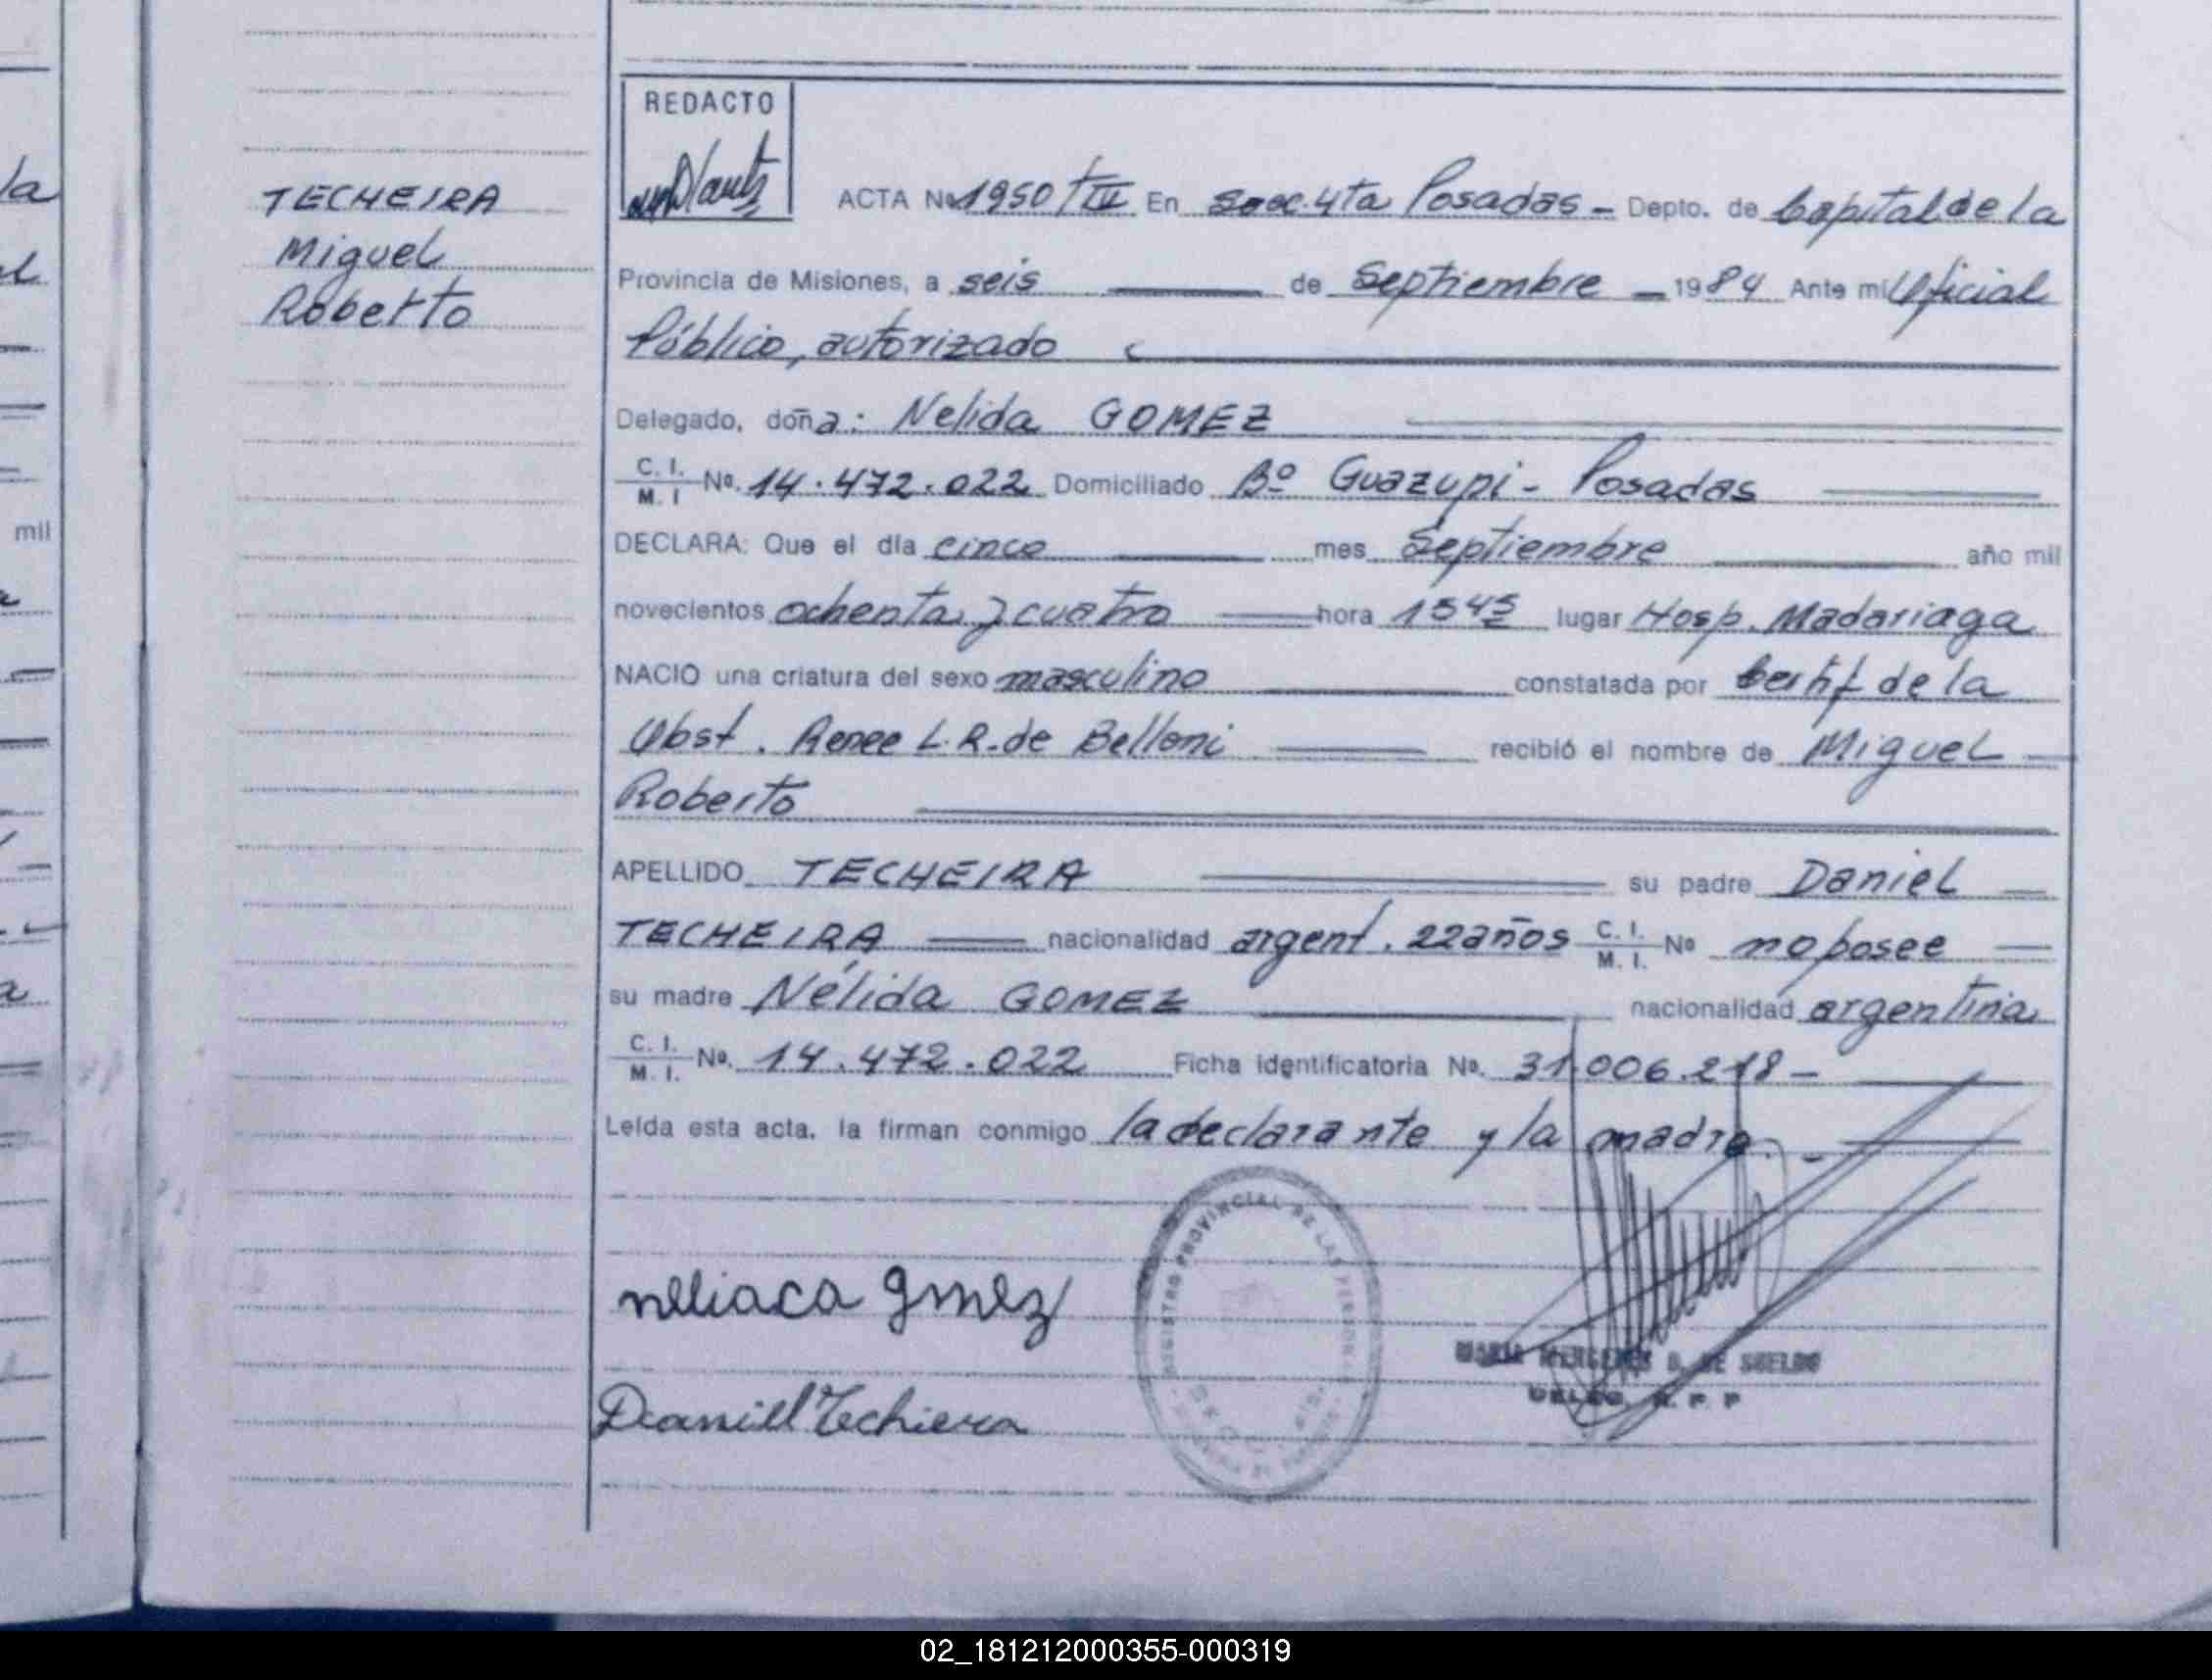 la
mil
TECHEIRA
Miguel
Roberto
REDACTO
ACTA Nº 1950 En Secc. 4ta Posadas - Depto. de Capital de la
Provincia de Misiones, a seis de Septiembre 1984 Ante mi Oficial
Público, autorizado
Delegado, doña: Nelida GOMEZ
C. I. M. I Nº. 14.472.022 Domiciliado Bº Guazupi - Posadas
DECLARA: Que el día cinco mes Septiembre año mil
novecientos ochenta y cuatro hora 1545 lugar Hosp. Madariaga
NACIO una criatura del sexo masculino constatada por Certif de la
Obst. Renee L.R. de Belloni recibió el nombre de Miguel
Roberto
APELLIDO TECHEIRA su padre Daniel
TECHEIRA nacionalidad argent. 22 años C. I. M. I. Nº no posee
su madre Nélida GOMEZ nacionalidad argentina
C. I. M. I. Nº. 14.472.022 Ficha identificatoria Nº. 31.006.218 -
Leída esta acta, la firman conmigo la declarante y la madre. -
REGISTRO PROVINCIAL DE LAS PERSONAS
nelliaca gmez
DE SUELDO
Daniell Techiera
02_181212000355-000319